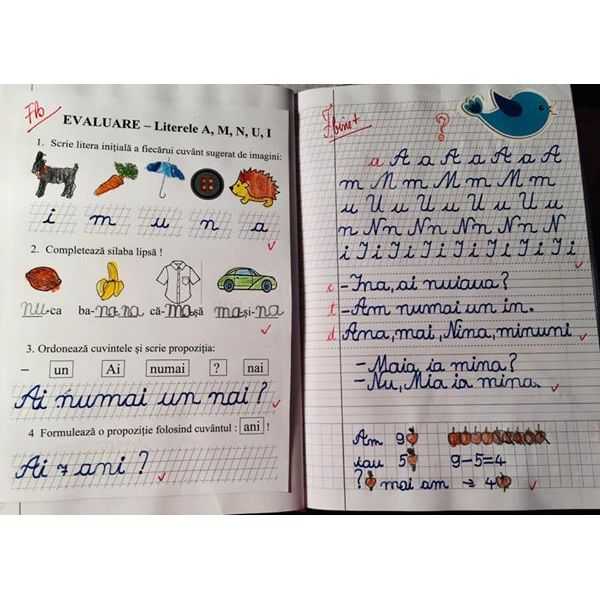 Fb
EVALUARE – Literele A, M, N, U, I
1. Scrie litera inițială a fiecărui cuvânt sugerat de imagini:
i m u n a
2. Completează silaba lipsă !
nu-ca ba-na-na că-ma-șă ma-și-na
3. Ordonează cuvintele și scrie propoziția:
– un Ai numai ? nai
Ai numai un nai ?
4 Formulează o propoziție folosind cuvântul : ani !
Ai 7 ani ?
?
a A a A a A a A a A
m M m M m M m
u U u U u U u U u
n N n N n N n N n N
i I i I i I i I i I i I i
-Ina, ai nuiaua?
t -Am numai un in.
d Ana, mai, Nina, minuni
-Maia ia mina?
-Nu, Mia ia mina.
Am 9
iau 5 9-5=4
? mai am → 4